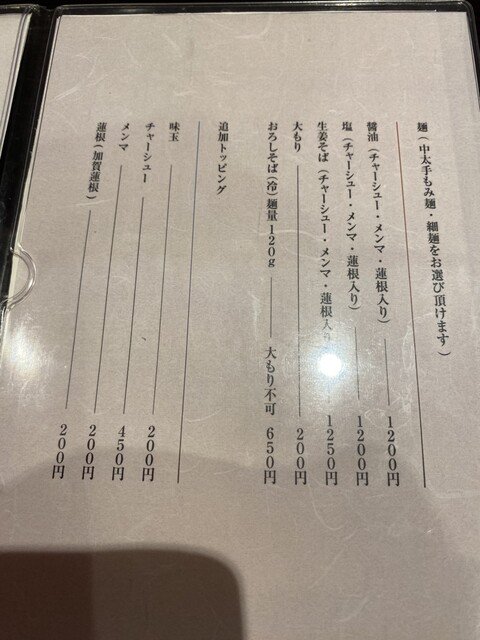 麺（中太手もみ麺・細麺をお選び頂けます）
醤油（チャーシュー・メンマ・蓮根入り） 1200円
塩（チャーシュー・メンマ・蓮根入り） 1200円
生姜そば（チャーシュー・メンマ・蓮根入り 1250円
大もり 200円
おろしそば（冷）麺量120g 大もり不可 650円
追加トッピング
味玉 200円
チャーシュー 450円
メンマ 200円
蓮根（加賀蓮根） 200円